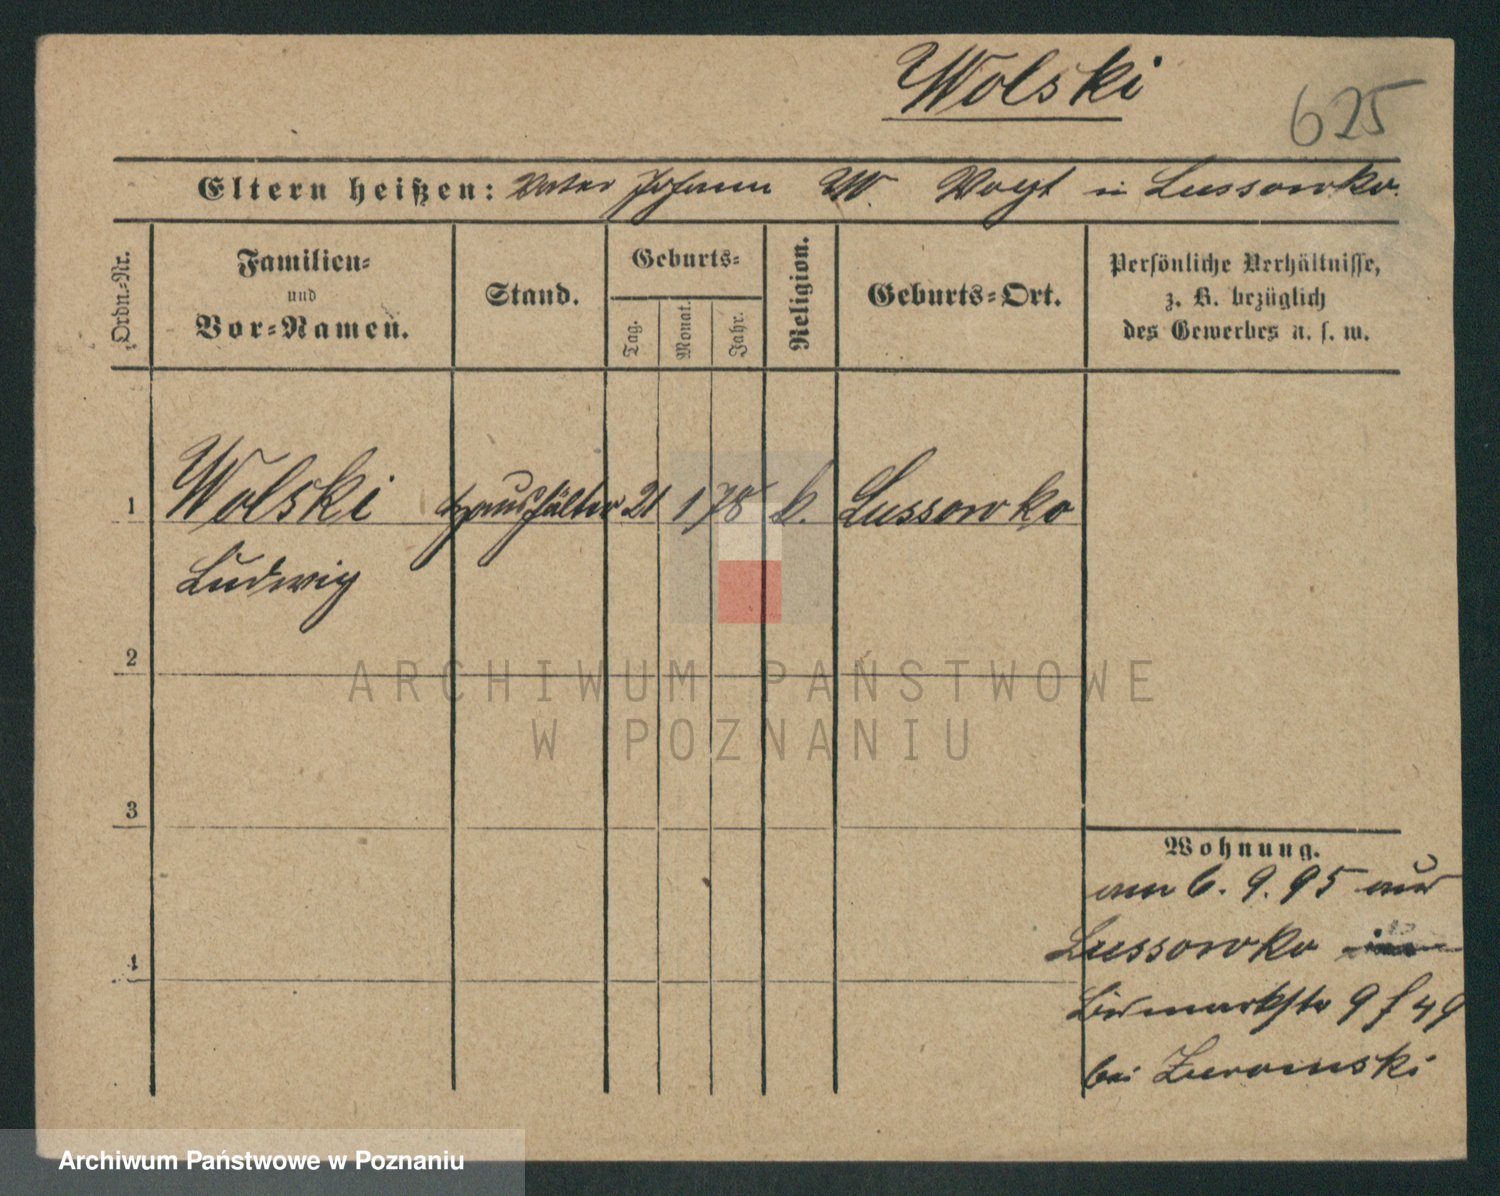 Wolski
625
Eltern heißen: Vater Johann W. Voigt in Lussowko.
Ordn.-Nr.
Familien- und Vor-Namen.
Stand.
Geburts-
Tag.
Monat.
Jahr.
Religion.
Geburts-Ort.
Persönliche Verhältnisse,
z. B. bezüglich
des Gewerbes u. s. w.
1 Wolski Haushälter 21 1 78 k. Lussowko
Ludwig
2
3
4
Wohnung.
am 6. 9. 95 aus
Lussowko
Bismarckstr 9
bei
ARCHIWUM PAŃSTWOWE
W POZNANIU
Archiwum Państwowe w Poznaniu